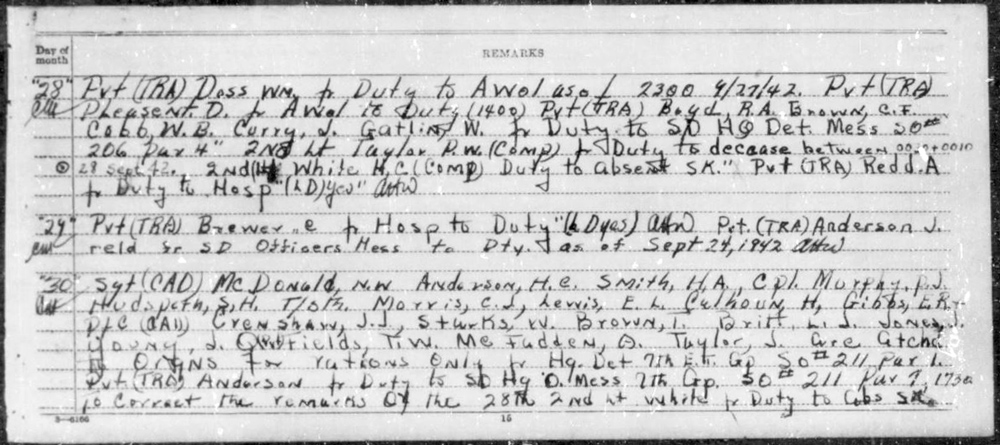 Day of month
REMARKS
"28" Pvt (TRA) Doss Wm. fr Duty to Awol as of 2300 9/27/42. Pvt (TRA)
Pleasent. D. fr Awol to Duty (1400) Pvt (TRA) Boyd, R.A. Brown, C.F.
Cobb, W.B. Curry, J. Gatling W. fr Duty to SD HQ Det. Mess SO#
206 Par 4" 2nd Lt Taylor P.W. (Comp) fr Duty to decease between 0000+0010
28 Sept 42. 2nd Lt White H.C. (Comp) Duty to absent SK." Pvt (TRA) Redd. A
fr Duty to Hosp "(LD) yes"
"29" Pvt (TRA) Brewer fr Hosp to Duty "(LD yes) Pvt. (TRA) Anderson J.
reld fr SD Officers Mess to Dty. as of Sept 24, 1942
"30" Sgt (CAD) McDonald, N.W. Anderson, H.C. Smith, H.A., Cpl. Murphy, P.J.
Hudspeth, S.H. T/5th. Morris, C.J., Lewis, E.L. Calhoun, H, Gibbs, E.R.
Pfc (CAD) Crenshaw, J.J., Starks, W. Brown, T. Britt, L.J. Jones, J.
Young, J. Fields, T.W. McFadden, O. Taylor, J. are atchd
Orgns for rations Only fr Hq. Det 7th Gp SO# 211, Par 1.
Pvt. (TRA) Anderson fr Duty to SD Hq O. Mess 7th Gp. SO# 211 Par 7, 1730
to Correct the remarks Of the 28th 2nd Lt White fr Duty to abs SK.
3-6166
15